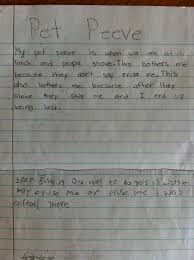 Pet Peeve
My pet peeve is when we are at
lunch and people shove. This bothers me
because they don't say exuse me. This
also bothers me because after they
shove they skip me and I end up
being last.
one way to do this is
say exuse me or I was
alread there